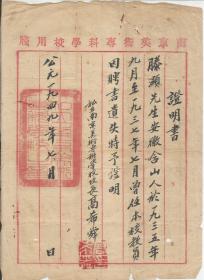 南京美術專科學校用牋
證明書
滕先生安徽含山人於一九三五年
九月至一九三七年七月曾任本校教員
因聘書遺失特予證明
私立南京美術專科學校校長高希舜
公元一九四九年七月 日